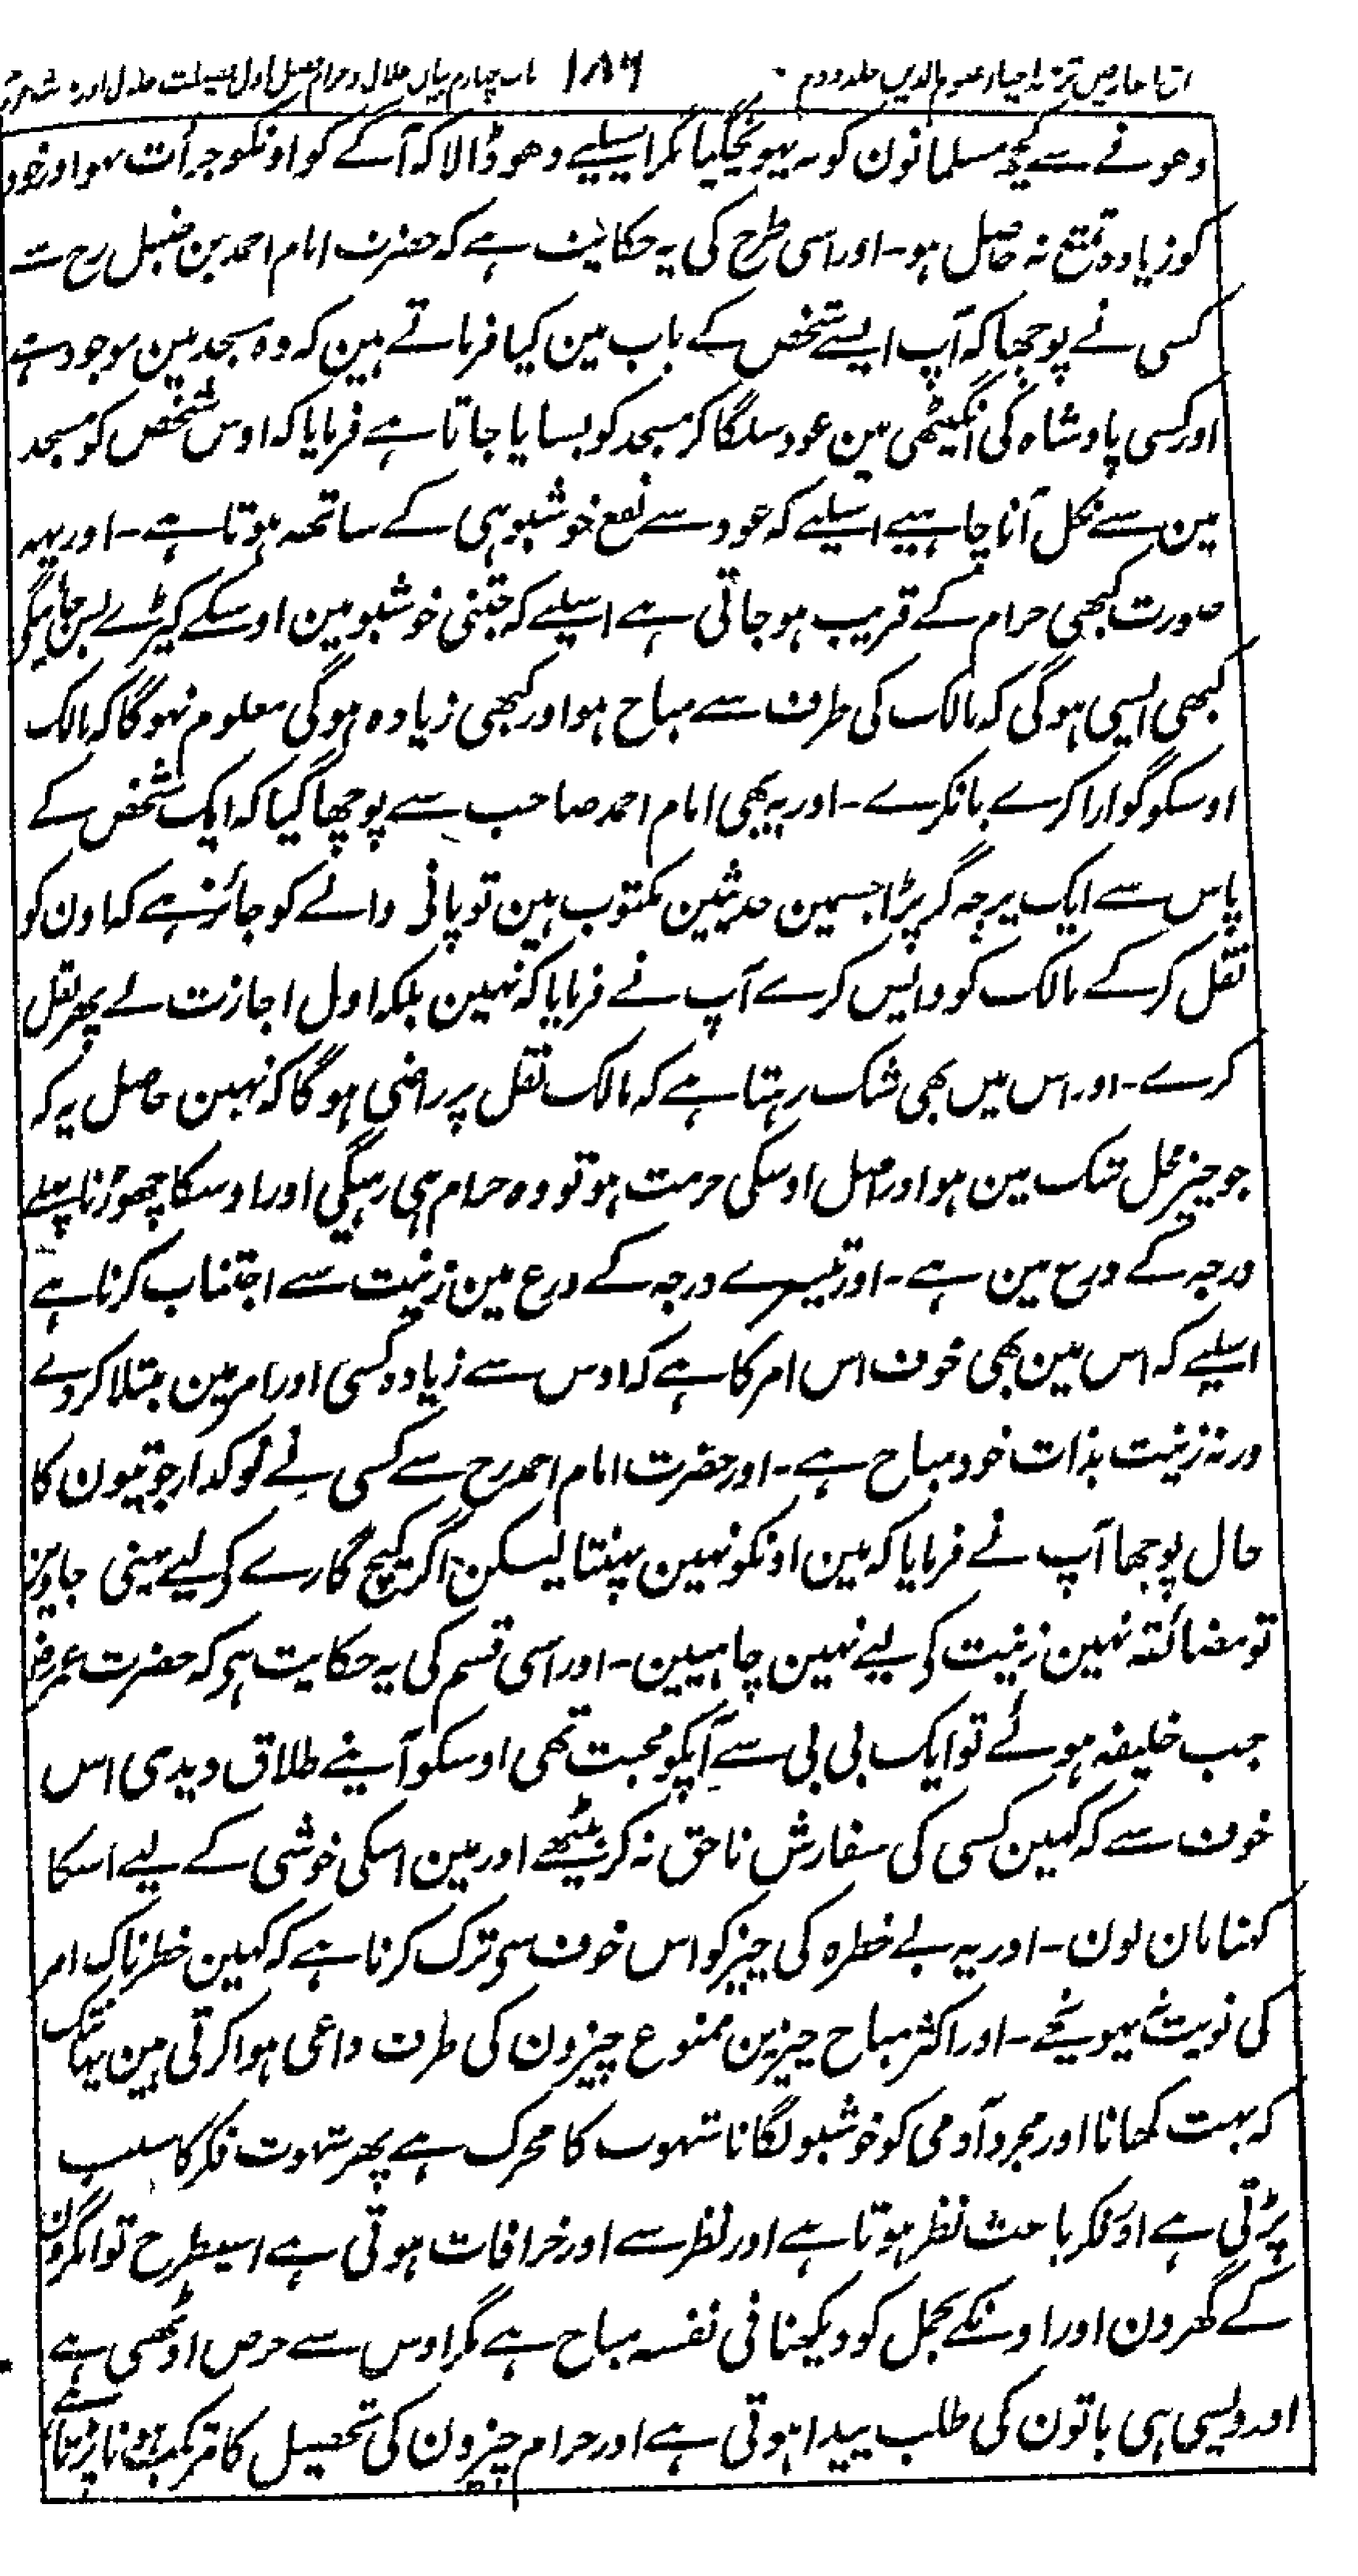 باب چہارم بیان حلال و حرام فصل اول ۱۸۶ احیاء علوم الدین جلد دوم
دھونے سے کچھ مسلمانون کو نہ پہونچگیا مگر اسیلیے دھو ڈالا کہ آگے کو اونکو جرأت نہو اور خود
کو زیادہ تمتع نہ حاصل ہو۔ اور اسی طرح کی یہ حکایت ہے کہ حضرت امام احمد بن حنبل رح سے
کسی نے پوچھا کہ آپ ایسے شخص کے باب مین کیا فرماتے ہین کہ وہ مسجد مین موجود ہے
اور کسی پادشاہ کی انگیٹھی مین عود سلگا کر مسجد کو بسایا جاتا ہے فرمایا کہ اوس شخص کو مسجد
مین سے نکل آنا چاہیے اسیلیے کہ عود سے نفع خوشبو ہی کے ساتھہ ہوتا ہے۔ اور یہہ
صورت کبھی حرام کے قریب ہو جاتی ہے اسیلیے کہ جتنی خوشبو مین اوسکے کپڑے بس جائینگے
کبھی ایسی ہوگی کہ مالک کی طرف سے مباح ہو اور کبھی زیادہ ہوگی معلوم نہوگا کہ مالک
اوسکو گوارا کرے یا نکرے۔ اور یہ بھی امام احمد صاحب سے پوچھا گیا کہ ایک شخص کے
پاس سے ایک پرچہ گر پڑا جسمین حدیثین مکتوب ہین تو پانی والے کو جائز ہے کہ اون کو
نقل کر کے مالک کو واپس کرے آپ نے فرمایا کہ نہین بلکہ اول اجازت لے پھر نقل
کرے۔ اور اس میں بھی شک رہتا ہے کہ مالک نقل پر راضی ہوگا کہ نہین حاصل یہ کہ
جو چیز محل شک مین ہو اور اصل اوسکی حرمت ہو تو وہ حرام ہی رہیگی اور اوسکا چھوڑنا پہلے
درجہ کے ورع مین ہے۔ اور تیسرے درجہ کے ورع مین زینت سے اجتناب کرنا ہے
اسلیے کہ اس مین بھی خوف اس امر کا ہے کہ اوس سے زیادہ کسی اور امر مین مبتلا کردے
ورنہ زینت بذات خود مباح ہے۔ اور حضرت امام احمد رح سے کسی نے نوکدار جوتیون کا
حال پوچھا آپ نے فرمایا کہ مین اونکو نہین پہنتا لیسکن اگر کیچ گارے کے لیے پہنی جاوین
تو مضائقہ نہین زینت کے لیے نہین چاہیین۔ اور اسی قسم کی یہ حکایت ہی کہ حضرت عمر رض
جب خلیفہ ہوئے تو ایک بی بی سے آپکو محبت تھی اوسکو آپنے طلاق دیدی اس
خوف سے کہ کہین کسی کی سفارش ناحق نہ کر بیٹھے اور مین اسکی خوشی کے لیے اسکا
کہنا مان لون۔ اور یہ بے خطرہ کی چیز کو اس خوف سی ترک کرنا ہے کہ کہین خطرناک امر
کی نوبت پہونچے۔ اور اکثر مباح چیزین ممنوع چیزون کی طرف داعی ہوا کرتی ہین یہانتک
کہ بہت کھانا اور مجرد آدمی کو خوشبو لگانا شہوت کا محرک ہے پھر شہوت فکر کا سبب
پڑتی ہے اور فکر باعث نظر ہوتا ہے اور نظر سے اور خرافات ہوتی ہے اسیطرح توانگرون
کے گھرون اور اونکے تجمل کو دیکھنا فی نفسہ مباح ہے مگر اوس سے حرص اوٹھی ہے
اور ویسی ہی باتون کی طلب پیدا ہوتی ہے اور حرام چیزون کی تحصیل کا مرتکب ہونا پڑتا ہے